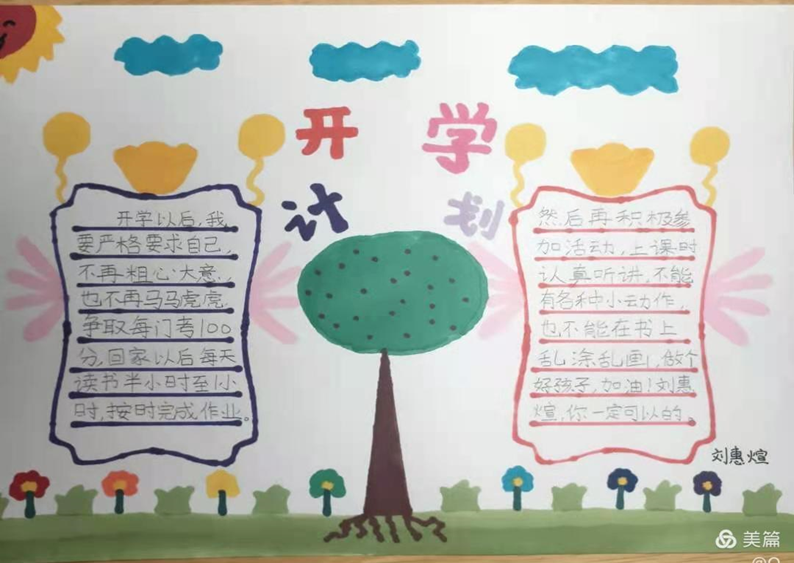 开学
计划
开学以后,我
要严格要求自己,
不再粗心大意,
也不再马马虎虎.
争取每门考100
分,回家以后每天
读书半小时至1小
时,按时完成作业。
然后再积极参
加活动,上课时
认真听讲,不能
有各种小动作,
也不能在书上
乱涂乱画,做个
好孩子,加油!刘惠
煊,你一定可以的。
刘惠煊
美篇